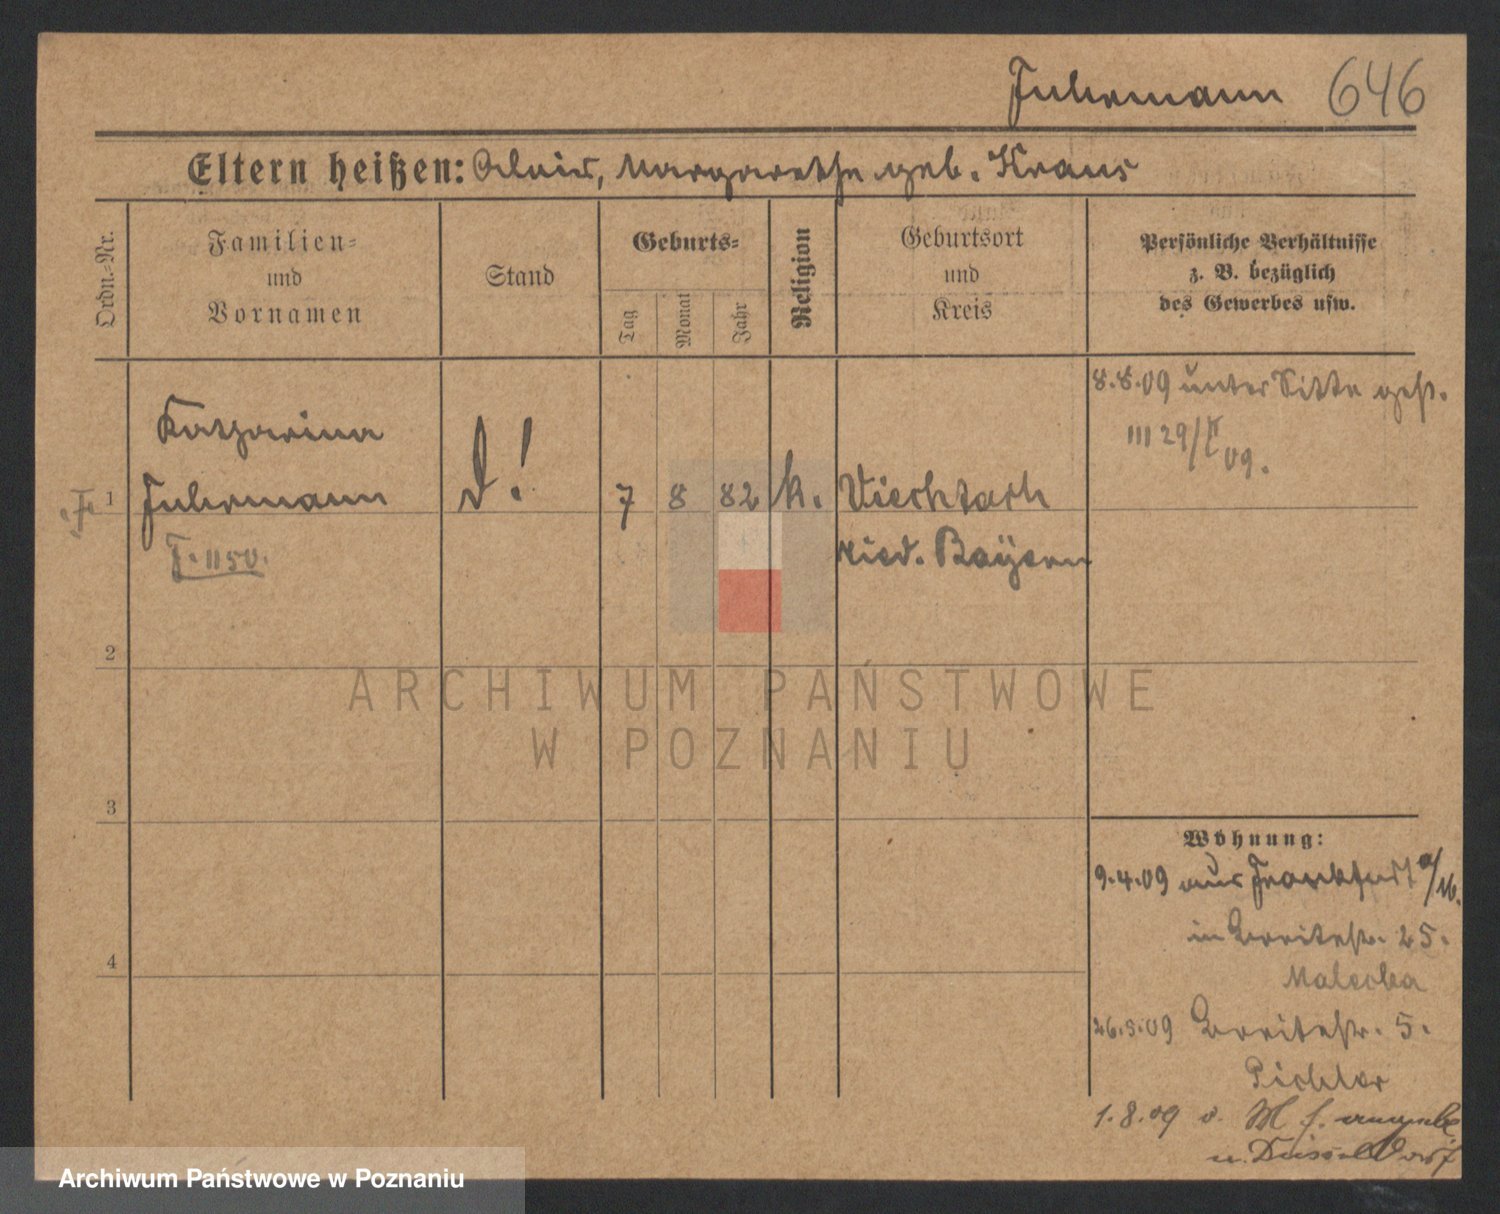 Fuhrmann 646
Eltern heißen: Alois, Margarethe geb. Kraus
Ordn.=Nr.
Familien=
und
Vornamen
Stand
Geburts=
Tag
Monat
Jahr
Religion
Geburtsort
und
Kreis
Persönliche Verhältnisse
z. B. bezüglich
des Gewerbes usw.
8.8.09 unter Sitte gest.
III 29/ 09.
Katharina
1 Fuhrmann
7 8 82 k. Viechtach
F. 1150.
ried. Bayern
2
3
4
Wohnung:
9.4.09 aus Frankfurt a/M.
in Breitestr. 25.
Malecka
26.5.09 Breitestr. 5.
Pichler
1.8.09
n. Düsseldorf
ARCHIWUM PAŃSTWOWE
W POZNANIU
Archiwum Państwowe w Poznaniu